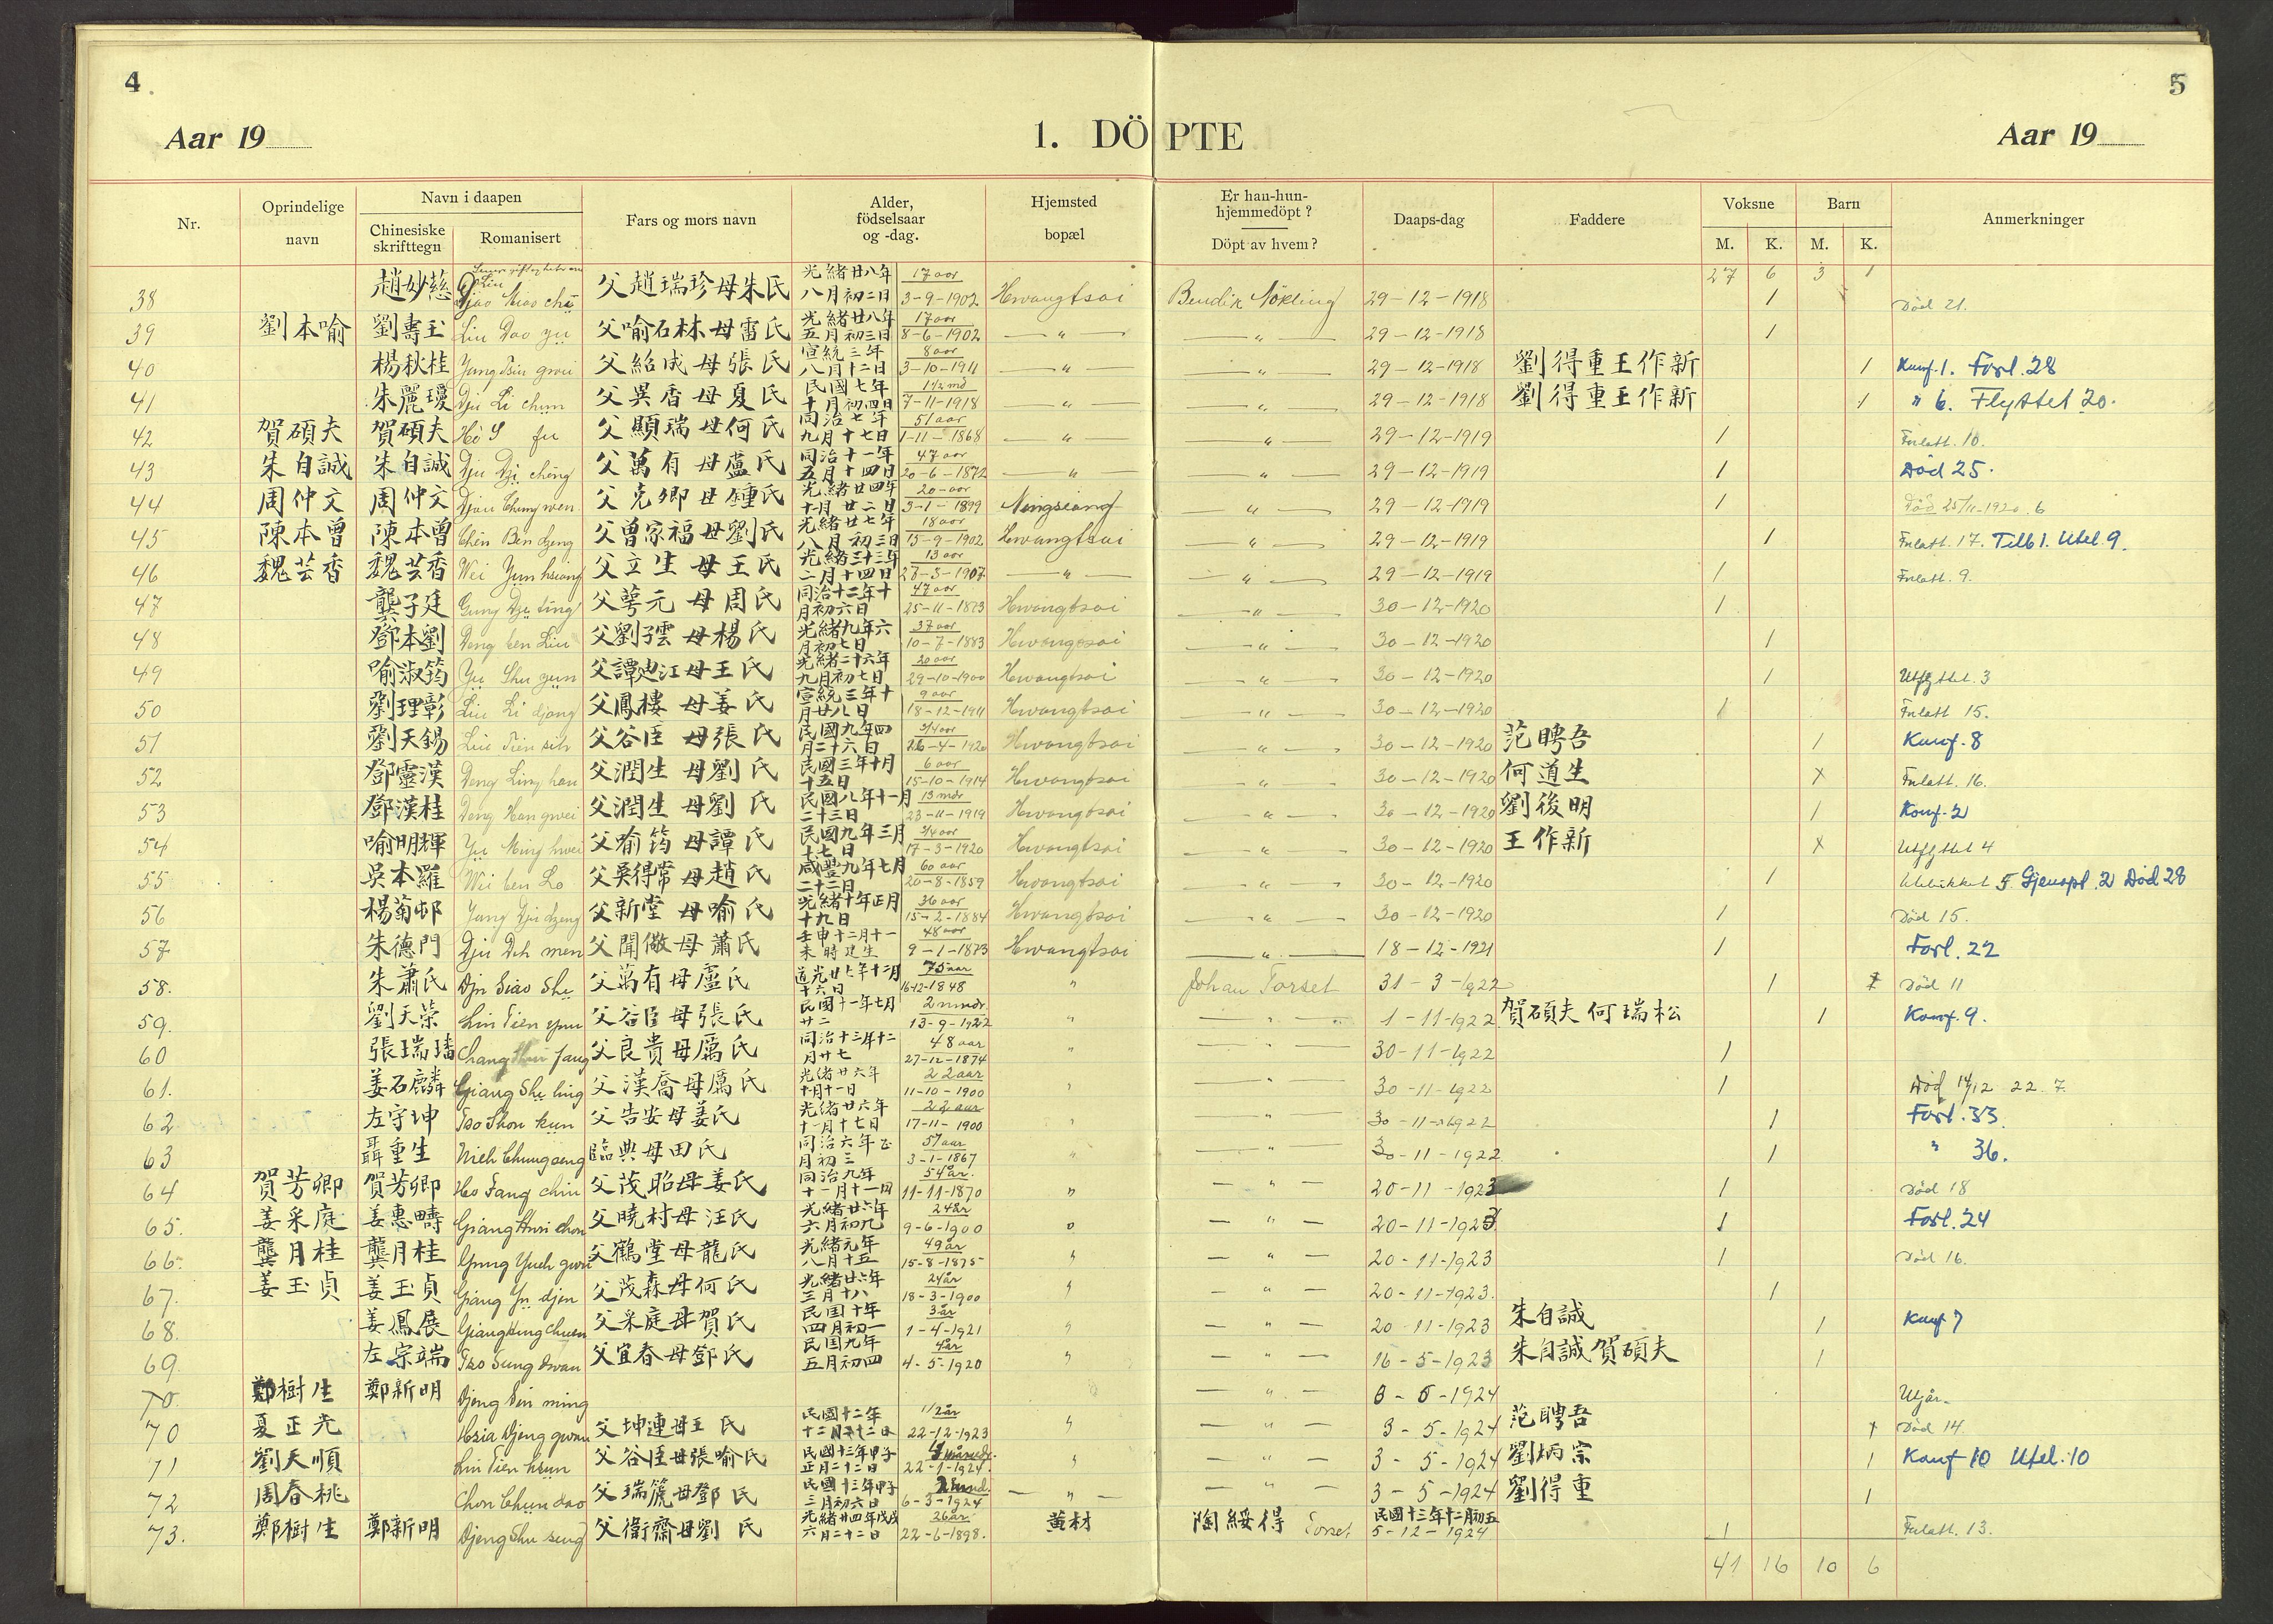 4
5
Aar 19
1. DÖPTE
Aar 19
Nr.
Oprindelige navn
Navn i daapen
Chinesiske skrifttegn
Romanisert
Fars og mors navn
Alder, födselsaar og -dag.
Hjemsted bopæl
Er han-hun-hjemmedöpt ?
Döpt av hvem ?
Daaps-dag
Faddere
Voksne
M. K.
Barn
M. K.
Anmerkninger
27 6 3 1
38 趙妙慈 Djao Miao 父趙瑞珍母朱氏 光緒廿八年八月初二日 17 aar 3-9-1902 Hwangtsai Bendik Nökling 29-12-1918 1 Död 21.
39 劉本喻 劉壽玉 Liu Bao yu 父喻石林母雷氏 光緒廿八年五月初三日 17 aar 8-6-1902 — " — — " — 29-12-1918 1
40 楊秋桂 Yang Tsiu gwei 父紹成母張氏 宣統三年八月十二日 8 aar 3-10-1911 — " — — " — 29-12-1918 劉得重王作新 1 Konf. 1. Forl. 28
41 朱麗瓊 Dju Li chun 父吳香母夏氏 民國七年十月初四日 1½ md 7-11-1918 — " — — " — 29-12-1918 劉得重王作新 1 " 6. Flyttet 20.
42 賀碩夫 賀碩夫 Ho S fu 父顯瑞母何氏 同治七年九月十七日 51 aar 1-11-1868 — " — — " — 29-12-1919 1 Inlatt. 10.
43 朱自誠 朱自誠 Dju Dzi cheng 父萬有母盧氏 同治十一年五月十四日 47 aar 20-6-1872 — " — — " — 29-12-1919 1 Död 25.
44 周仲文 周仲文 Djou Chung wen 父克卿母鍾氏 光緒廿四年十月廿二日 20-aar 3-1-1899 Ningseang — " — 29-12-1919 1 Död 25/11-1920. 6
45 陳本曾 陳本曾 Chen Ben dzeng 父曾家福母劉氏 光緒廿七年八月初三日 18 aar 15-9-1902 Hwangtsai — " — 29-12-1919 1 Inlatt. 17. Tilb 1. Utel. 9.
46 魏芸香 魏芸香 Wei Yun hsiang 父立生母王氏 光緒三十三年二月十四日 13 aar 27-3-1907 — " — — " — 29-12-1919 1 Inlatt. 9.
47 龔子廷 Gung Dze ting 父萼元母周氏 同治十二年十月初六日 47 aar 25-11-1873 Hwangtsai — " — 30-12-1920 1
48 鄧本劉 Deng ben Liu 父劉子雲母楊氏 光緒九年六月初七日 37 aar 10-7-1883 Hwangtsai — " — 30-12-1920 1
49 喻淑筠 Yu Shu yun 父譚迪江母王氏 光緒二十六年九月初七日 20 aar 29-10-1900 Hwangtsai — " — 30-12-1920 1 Utflyttet. 3
50 劉理彰 Liu Li djang 父鳳樓母姜氏 宣統三年十月廿八日 9 aar 18-12-1911 Hwangtsai — " — 30-12-1920 1 Inlatt 15.
51 劉天錫 Liu Tien sih 父谷臣母張氏 民國九年四月二十六日 3/4 aar 26-4-1920 Hwangtsai — " — 30-12-1920 范聘吾 1 Konf. 8
52 鄧靈漢 Deng Ling han 父潤生母劉氏 民國三年十月十五日 6 aar 15-10-1914 Hwangtsai — " — 30-12-1920 何道生 x Inlatt. 16.
53 鄧漢桂 Deng Han gwei 父潤生母劉氏 民國八年十一月二十三日 13 mdr 23-11-1919 Hwangtsai — " — 30-12-1920 劉後明 1 Konf. 2
54 喻明輝 Yu Ming hwei 父喻筠母譚氏 民國九年三月十七日 3/4 aar 17-3-1920 Hwangtsai — " — 30-12-1920 王作新 x Utflyttet 4
55 吳本羅 Wu ben Lo 父吳得常母趙氏 咸豐九年七月二十二日 60 aar 20-8-1859 Hwangtsai — " — 30-12-1920 1 Utelukket 5. Gjenopt. 2 Död 28
56 楊菊邨 Yang Dju dzeng 父新堂母喻氏 光緒十年正月十九日 36 aar 15-2-1884 Hwangtsai — " — 30-12-1920 1 Död 15.
57 朱德門 Dju Deh men 父聞儆母蕭氏 壬申十二月十一未時建生 48 aar 9-1-1873 Hwangtsai — " — 18-12-1921 1 Forl. 22
58. 朱蕭氏 Dju Siao She 父萬有母盧氏 道光廿七年十二月十六日 75 aar 16-12-1848 " Johan Torset 31-3-1922 1 Död 11
59. 劉天榮 Liu Tien yun 父谷臣母張氏 民國十一年七月廿二 2 mndr. 13-9-1922 " — " — 1-11-1922 賀碩夫何瑞松 1 Konf. 9.
60 張瑞璠 Chang Hui fang 父良貴母厲氏 同治十三年十二月廿七 48 aar 27-12-1874 " — " — 30-11-1922 1
61. 姜石麟 Giang She ling 父漢喬母厲氏 光緒廿六年十月十一日 22 aar 11-10-1900 " — " — 30-11-1922 1 Död 14/12 22. 7.
62 左守坤 Tso Shou kun 父告安母姜氏 光緒廿六年十一月十七日 22 aar 17-11-1900 " — " — 30-11-1922 1 Forl. 33.
63 聶重生 Nieh Chung seng 臨典母田氏 同治六年正月初三 57 aar 3-1-1867 " — " — 30-11-1922 1 " 36.
64 賀芳卿 賀芳卿 Ho Fang chin 父茂昭母姜氏 同治九年十一月十一日 54 år. 11-11-1870 " — " — 20-11-1923 1 Död 18
65. 姜采庭 姜惠疇 Giang Hwi chou 父曉村母汪氏 光緒廿六年六月初九 24 år 9-6-1900 " — " — 20-11-1923 1 Forl. 24
66. 龔月桂 龔月桂 Gung Yueh gwei 父鶴堂母龍氏 光緒元年八月十五 49 år 15-8-1875 " — " — 20-11-1923 1 Död 16.
67. 姜玉貞 姜玉貞 Giang Yu djen 父茂森母何氏 光緒廿六年三月十八 24 år 18-3-1900 " — " — 20-11-1923. 1
68. 姜鳳展 Giang Fung chuen 父采庭母賀氏 民国十年四月初一 3 år 1-4-1921 " — " — 20-11-1923 朱自誠 1 Konf 7
69. 左宗端 Tso Tsung dwan 父宜春母鄧氏 民国九年五月初四 4 år 4-5-1920 " — " — 16-5-1923 朱自誠賀碩夫 1
70. 鄭樹生 鄭新明 Djeng Sin ming — " — 3-5-1924 Utgår.
70 夏正光 Hsia Djeng gwan 父坤連母王氏 民國十二年十二月二十二日 1/2 år 22-12-1923 " — " — 3-5-1924 范聘吾 x Död 14.
71 劉天順 Liu Tien shun 父谷臣母張喻氏 民國十三年甲子正月二十二日 22-1-1924. " — " — 3-5-1924 劉炳宗 1 Konf 10 Utel. 10
72 周春桃 Chou Chun dao 父瑞篪母鄧氏 民國十三年甲子三月初六日 6-3-1924 — " — — " — 3-5-1924 劉得重 1
73. 鄭樹生 鄭新明 Djeng Shu seng 父衛齋母劉氏 光緒廿四年戊戌六月二十二日 26 år 22-6-1898. 黄材 陶綏得 Torset 民國十三年十二月初五 5-12-1924 1 Inlatt. 13.
41 16 10 6